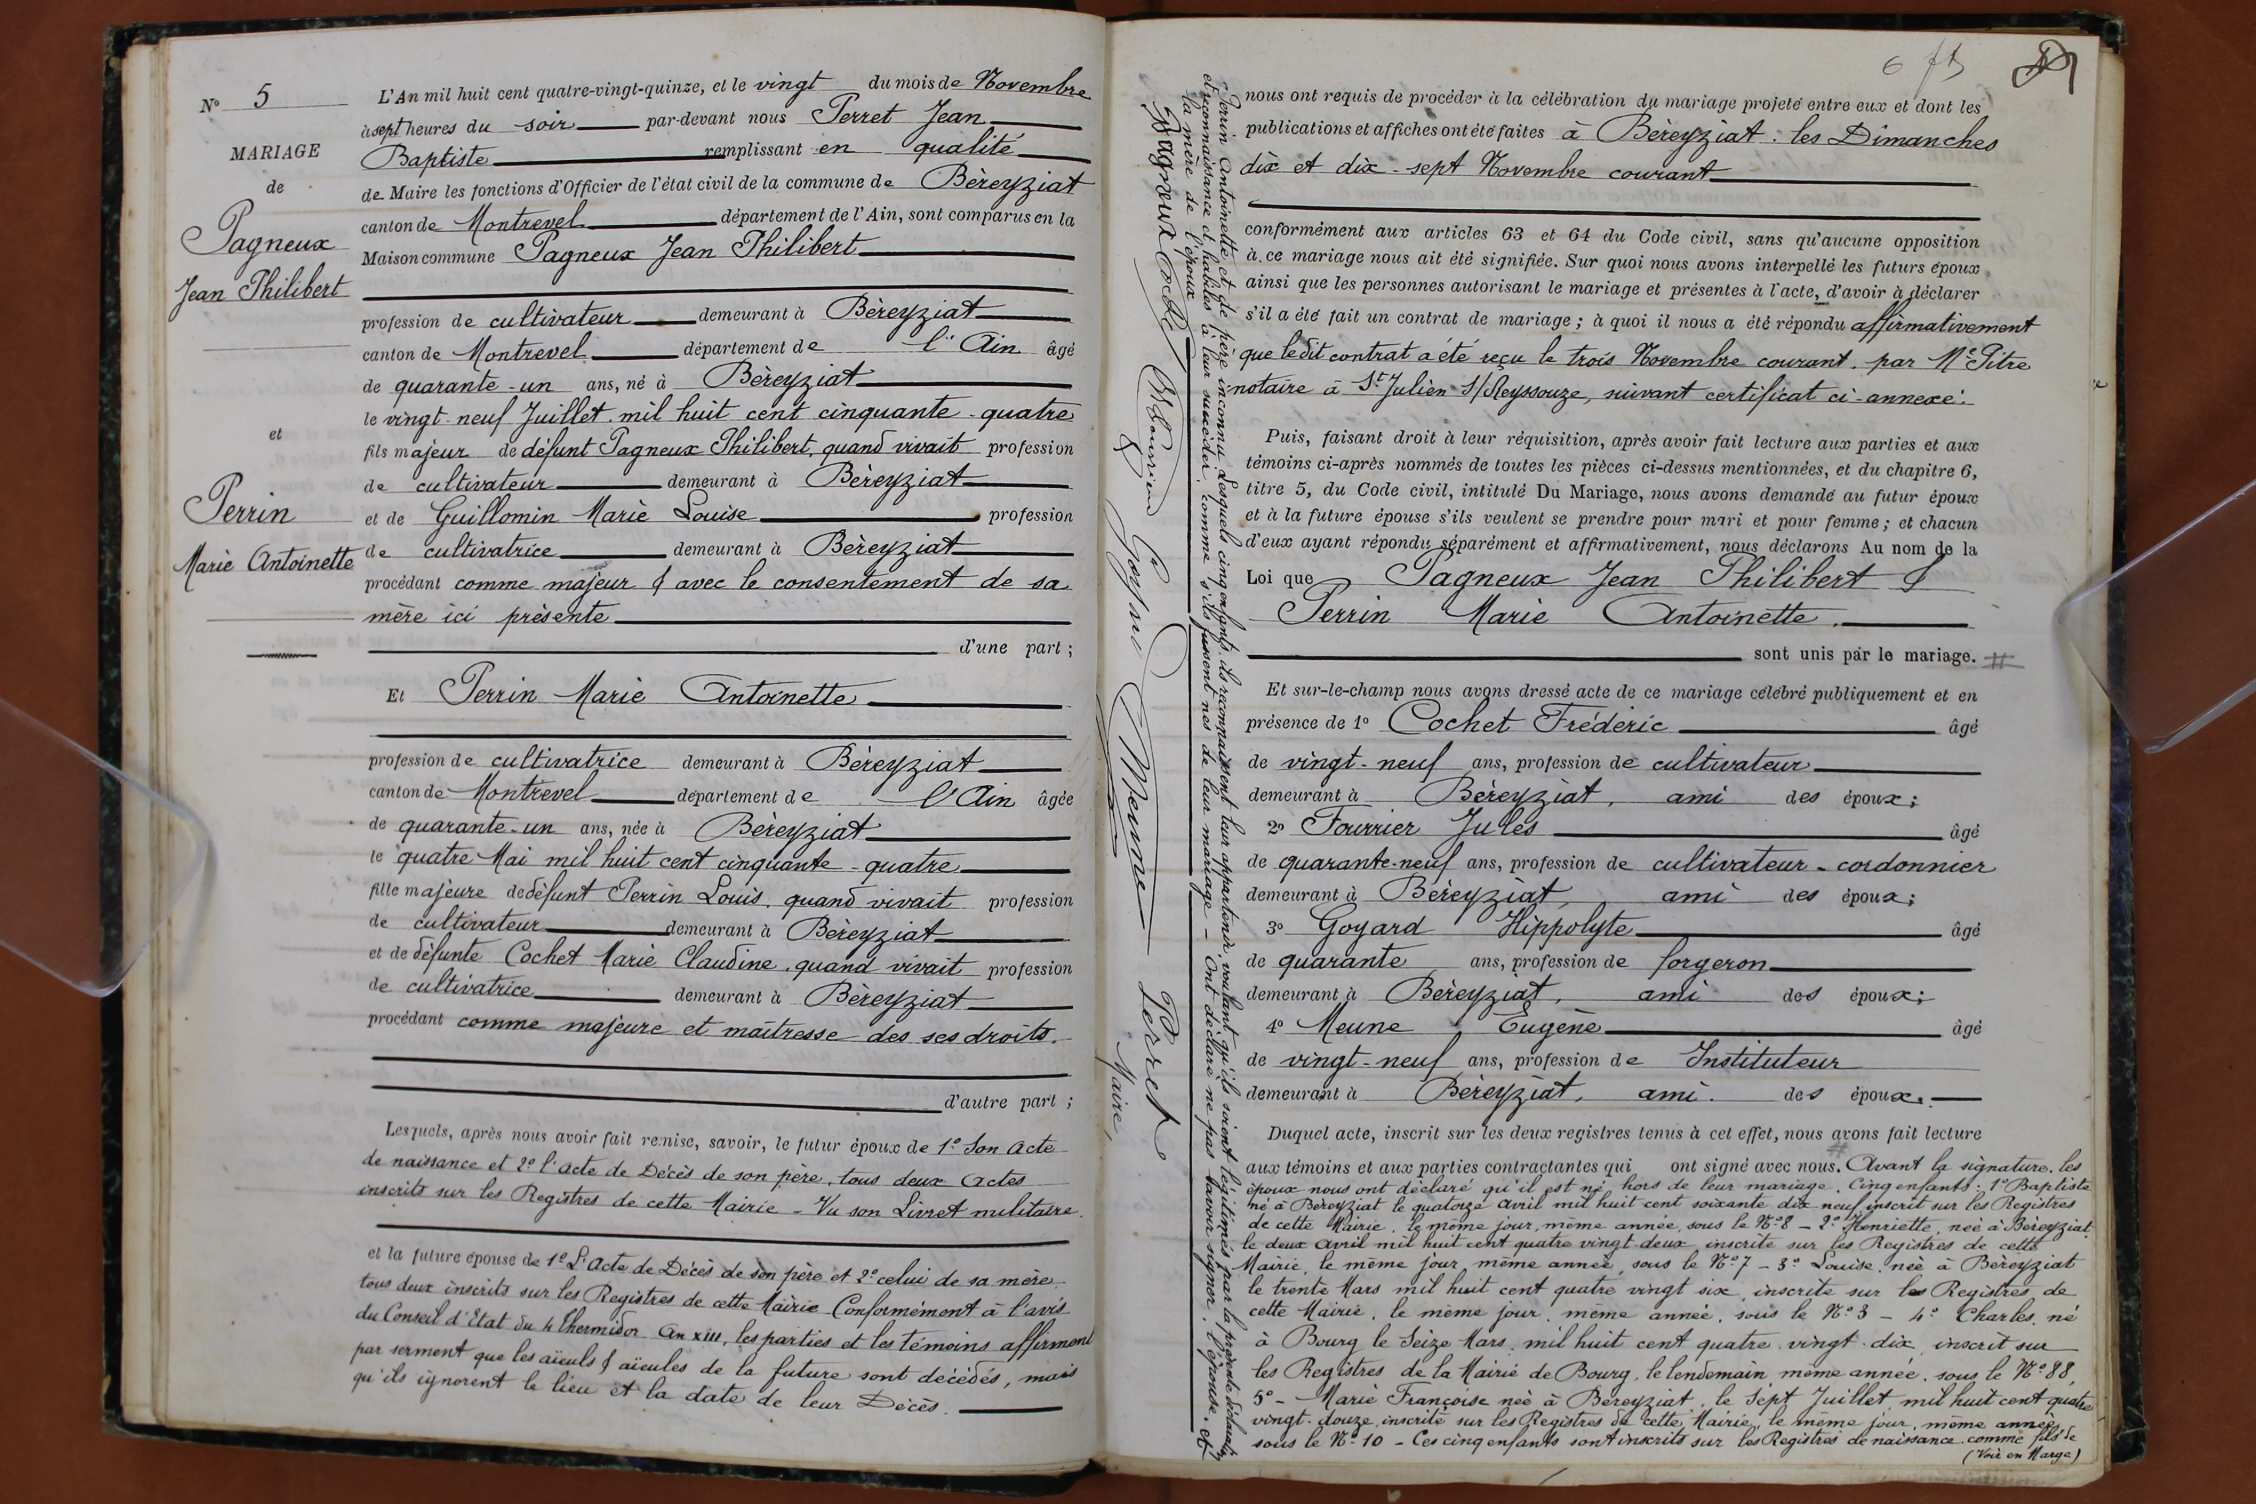 N° 5
MARIAGE
de
Pagneux
Jean Philibert
et
Perrin
Marie Antoinette
L'An mil huit cent quatre-vingt-quinze, et le vingt du mois de Novembre
à sept heures du soir par-devant nous Perret Jean
Baptiste remplissant en qualité
de Maire les fonctions d'Officier de l'état civil de la commune de Béreyziat
canton de Montrevel département de l'Ain, sont comparus en la
Maison commune Pagneux Jean Philibert
profession de cultivateur demeurant à Béreyziat
canton de Montrevel département de l'Ain âgé
de quarante-un ans, né à Béreyziat
le vingt-neuf Juillet mil huit cent cinquante-quatre
fils majeur de défunt Pagneux Philibert, quand vivait profession
de cultivateur demeurant à Béreyziat
et de Guillomin Marie Louise profession
de cultivatrice demeurant à Béreyziat
procédant comme majeur & avec le consentement de sa
mère ici présente
d'une part ;
Et Perrin Marie Antoinette
profession de cultivatrice demeurant à Béreyziat
canton de Montrevel département de l'Ain âgée
de quarante-un ans, née à Béreyziat
le quatre Mai mil huit cent cinquante-quatre
fille majeure de défunt Perrin Louis, quand vivait profession
de cultivateur demeurant à Béreyziat
et de défunte Cochet Marie Claudine, quand vivait profession
de cultivatrice demeurant à Béreyziat
procédant comme majeure et maîtresse des ses droits.
d'autre part ;
Lesquels, après nous avoir fait remise, savoir, le futur époux de 1° Son acte
de naissance et 2° l'acte de Décès de son père, tous deux actes
inscrits sur les Registres de cette Mairie - Vu son Livret militaire.
et la future épouse de 1° L'acte de Décès de son père et 2° celui de sa mère
tous deux inscrits sur les Registres de cette Mairie Conformément à l'avis
du Conseil d'Etat du 4 Thermidor An XIII, les parties et les témoins affirment
par serment que les aïeuls & aïeules de la future sont décédés, mais
qu'ils ignorent le lieu et la date de leur Décès.
nous ont requis de procéder à la célébration du mariage projeté entre eux et dont les
publications et affiches ont été faites à Béreyziat. les Dimanches
dix et dix-sept Novembre courant
conformément aux articles 63 et 64 du Code civil, sans qu'aucune opposition
à ce mariage nous ait été signifiée. Sur quoi nous avons interpellé les futurs époux
ainsi que les personnes autorisant le mariage et présentes à l'acte, d'avoir à déclarer
s'il a été fait un contrat de mariage ; à quoi il nous a été répondu affirmativement
que ledit contrat a été reçu le trois Novembre courant, par Me Pitre
notaire à St Julien S/Reyssouze, suivant certificat ci-annexé.
Puis, faisant droit à leur réquisition, après avoir fait lecture aux parties et aux
témoins ci-après nommés de toutes les pièces ci-dessus mentionnées, et du chapitre 6,
titre 5, du Code civil, intitulé Du Mariage, nous avons demandé au futur époux
et à la future épouse s'ils veulent se prendre pour mari et pour femme ; et chacun
d'eux ayant répondu séparément et affirmativement, nous déclarons Au nom de la
Loi que Pagneux Jean Philibert &
Perrin Marie Antoinette.
sont unis par le mariage. #
Et sur-le-champ nous avons dressé acte de ce mariage célébré publiquement et en
présence de 1° Cochet Frédéric âgé
de vingt-neuf ans, profession de cultivateur
demeurant à Béreyziat, ami des époux ;
2° Fourrier Jules âgé
de quarante-neuf ans, profession de cultivateur-cordonnier
demeurant à Béreyziat, ami des époux ;
3° Goyard Hippolyte âgé
de quarante ans, profession de forgeron
demeurant à Béreyziat, ami des époux ;
4° Meune Eugène âgé
de vingt-neuf ans, profession de Instituteur
demeurant à Béreyziat, ami des époux.
Duquel acte, inscrit sur les deux registres tenus à cet effet, nous avons fait lecture
aux témoins et aux parties contractantes qui ont signé avec nous. # Avant la signature, les
époux nous ont déclaré qu'il est né hors de leur mariage, Cinq enfants : 1° Baptiste
né à Béreyziat le quatorze avril mil huit cent soixante dix neuf inscrit sur les Registres
de cette Mairie, le même jour, même année, sous le N° 8 - 2° Henriette, née à Béreyziat
le deux Avril mil huit cent quatre vingt-deux, inscrite sur les Registres de cette
Mairie, le même jour, même année, sous le N° 7 - 3° Louise, née à Béreyziat
le trente Mars mil huit cent quatre vingt six, inscrite sur les Registres de
cette Mairie, le même jour, même année, sous le N° 3 - 4° Charles, né
à Bourg le Seize Mars, mil huit cent quatre-vingt-dix, inscrit sur
les Registres de la Mairie de Bourg, le lendemain, même année, sous le N° 88,
5° - Marie Françoise née à Béreyziat, le Sept Juillet, mil huit cent quatre
vingt-douze, inscrite sur les Registres de cette Mairie, le même jour, même année,
sous le N° 10 - Ces cinq enfants sont inscrits sur les Registres de naissance comme fils de
(Voir en Marge)
Perrin Antoinette et de père inconnu. Lesquels cinq enfants, ils reconnaissent leur appartenir, voulant qu'ils soient légitimés par la présente déclaration
et reconnaissance et habiles à leur succéder, comme s'ils fussent nés de leur mariage - Ont déclaré ne pas savoir signer, l'épouse, et
la mère de l'époux
Pagneux Cochet Fourrier Goyard Meune Perret
Maire,